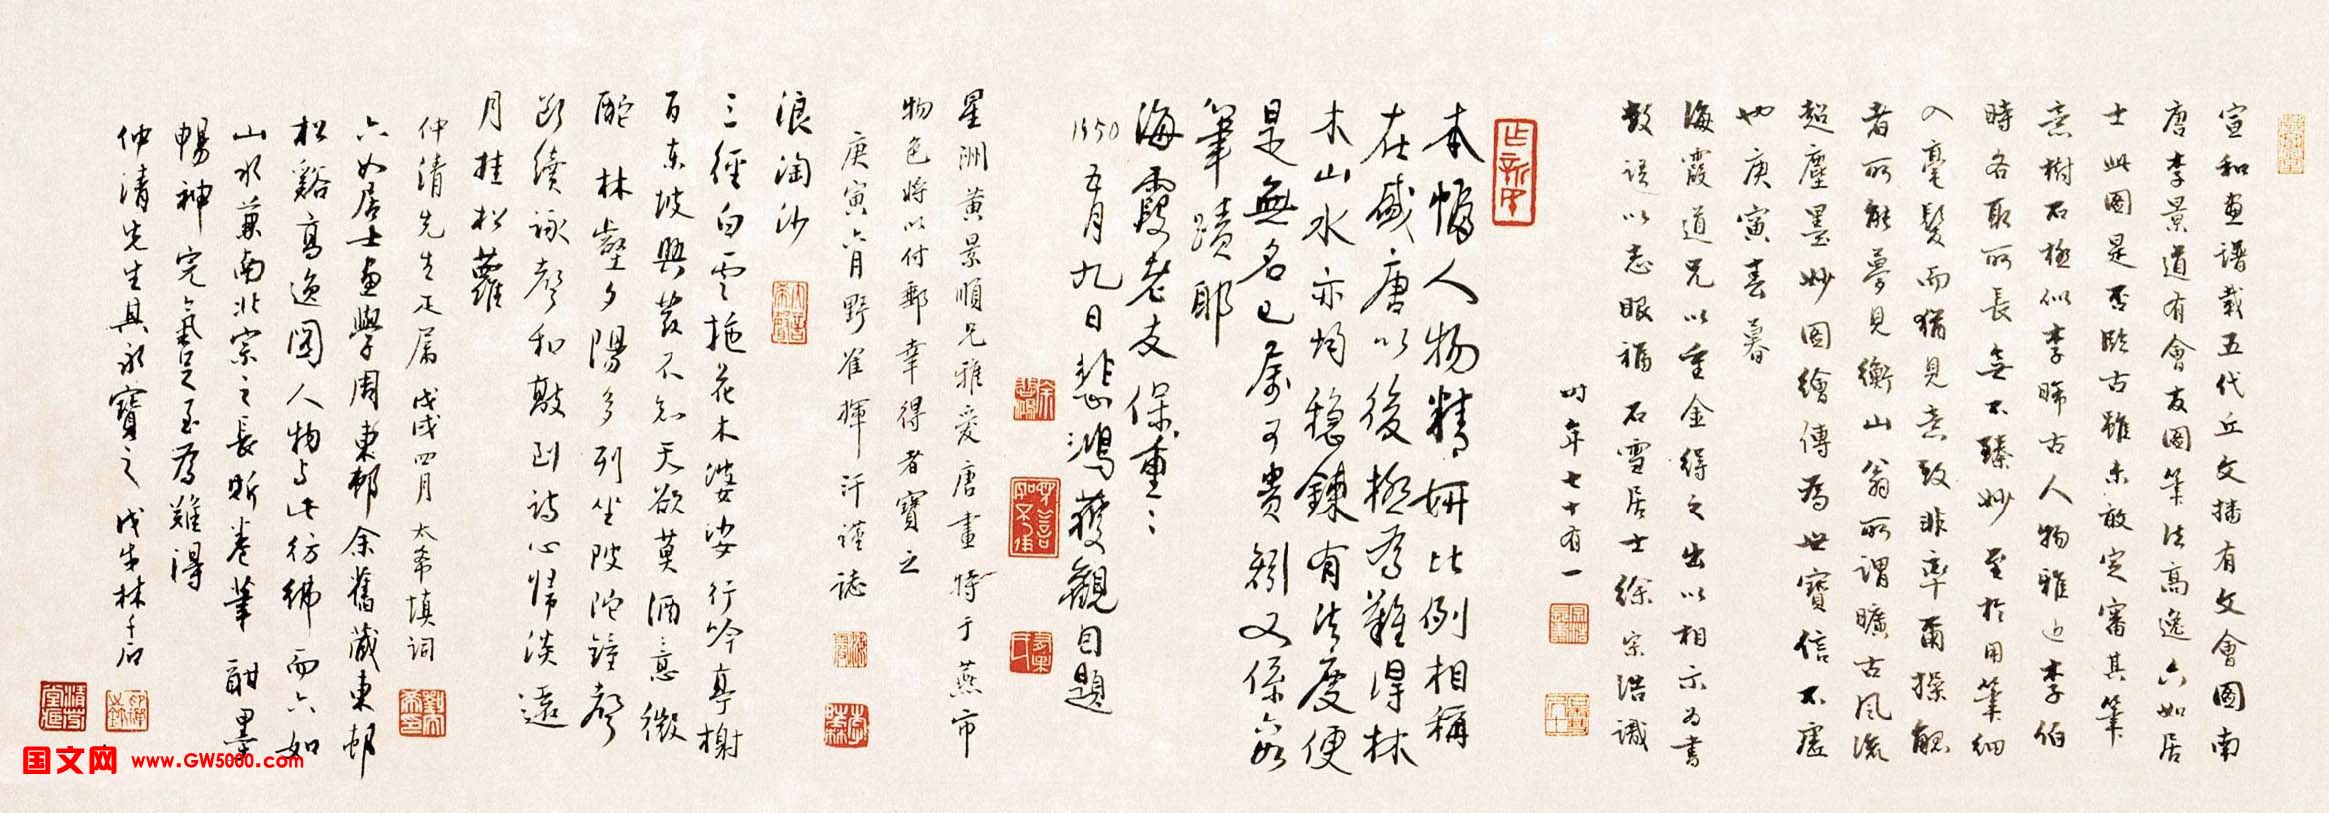 宣和畫譜載五代丘文播有文會圖南
唐李景道有會友圖筆法高逸六如居
士此圖是否臨古雖未敢定審其筆
意樹石極似李晞古人物雅近李伯
時各取所長無不臻妙至於用筆細
入毫髮而猶見意致非率爾操觚
者所能夢見衡山翁所謂曠古風流
超塵墨妙圖繪傳為世寶信不虛
也庚寅春暮
海霞道兄以重金得之出以相示為書
數語以志眼福石雪居士徐宗浩識
時年七十有一
本幅人物精妍比例相稱
在盛唐以後極為難得林
木山水亦均穩鍊有法度便
是無名已屬可貴矧又係六如
筆蹟耶
海霞老友保重:
1950五月九日悲鴻獲觀因題
星洲黃景順兄雅愛唐畫特于燕市
物色將以付郵幸得者寶之
庚寅六月野崔揮汗謹誌
浪淘沙
三徑白雲拖花木婆娑行吟亭榭
百東坡興發不知天欲莫酒意微
酡 林壑夕陽多列坐陂陀鐘聲
斷續詠聲和敲到詩心歸淡遠
月挂松蘿
仲清先生正屬戊戌四月太希填詞
六如居士畫學周東邨余舊藏東邨
松谿高逸圖人物與此彷彿而六如
山水兼南北宗之長斯卷筆酣墨
暢神完氣足至為難得
仲清先生其永寶之 戊戌林千石
国文网 www.GW5000.com